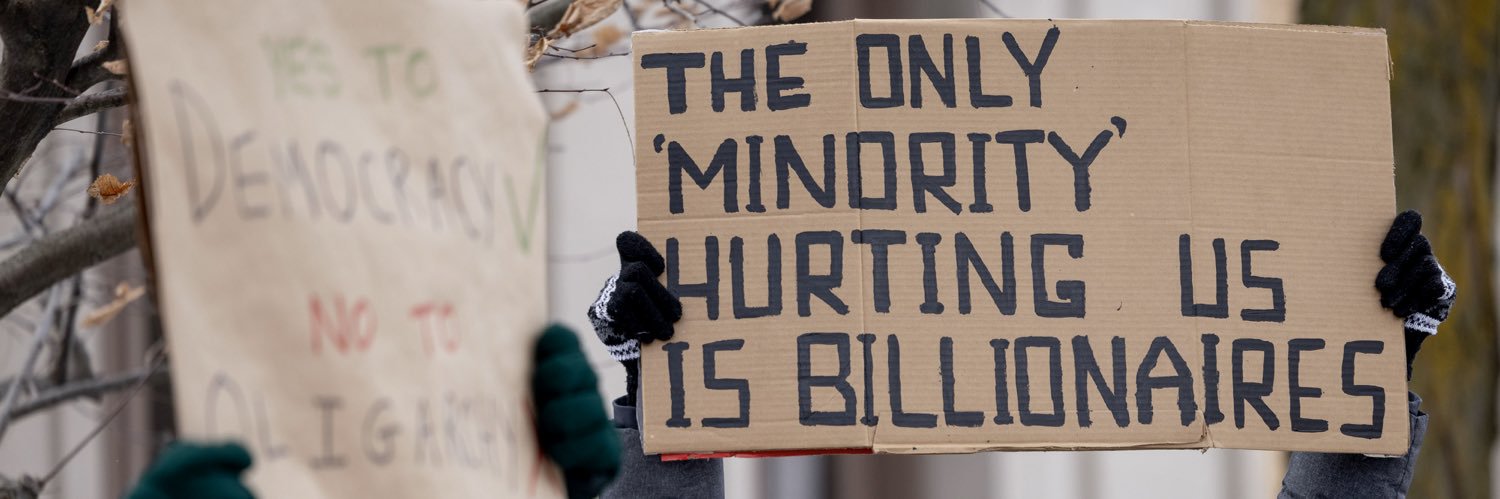 YES TO
DEMOCRACY ✓
NO TO
OLIGARCHY
THE ONLY
'MINORITY'
HURTING US
IS BILLIONAIRES